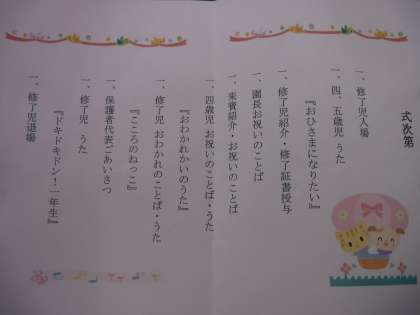 式次第
一、修了児入場
一、四、五歳児 うた
『おひさまになりたい』
一、修了児紹介・修了証書授与
一、園長お祝いのことば
一、来賓紹介・お祝いのことば
一、四歳児 お祝いのことば・うた
『おわかれかいのうた』
一、修了児 おわかれのことば・うた
『こころのねっこ』
一、保護者代表ごあいさつ
一、修了児 うた
『ドキドキドン!一年生』
一、修了児退場